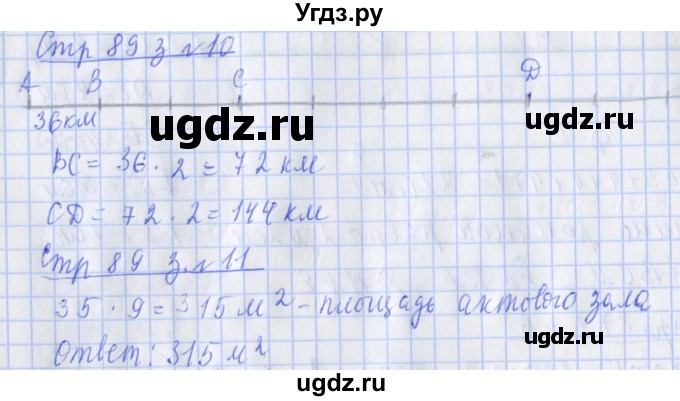 Угдз.ру
Стр 89 з №10
А В С D
36км
ugdz.ru ugdz.ru
ВС = 36 · 2 = 72 км
СД = 72 · 2 = 144 км
Стр 89 з. №11
35 · 9 = 315 м² - площадь актового зала
Ответ: 315 м²
ugdz.ru
ugdz.ru